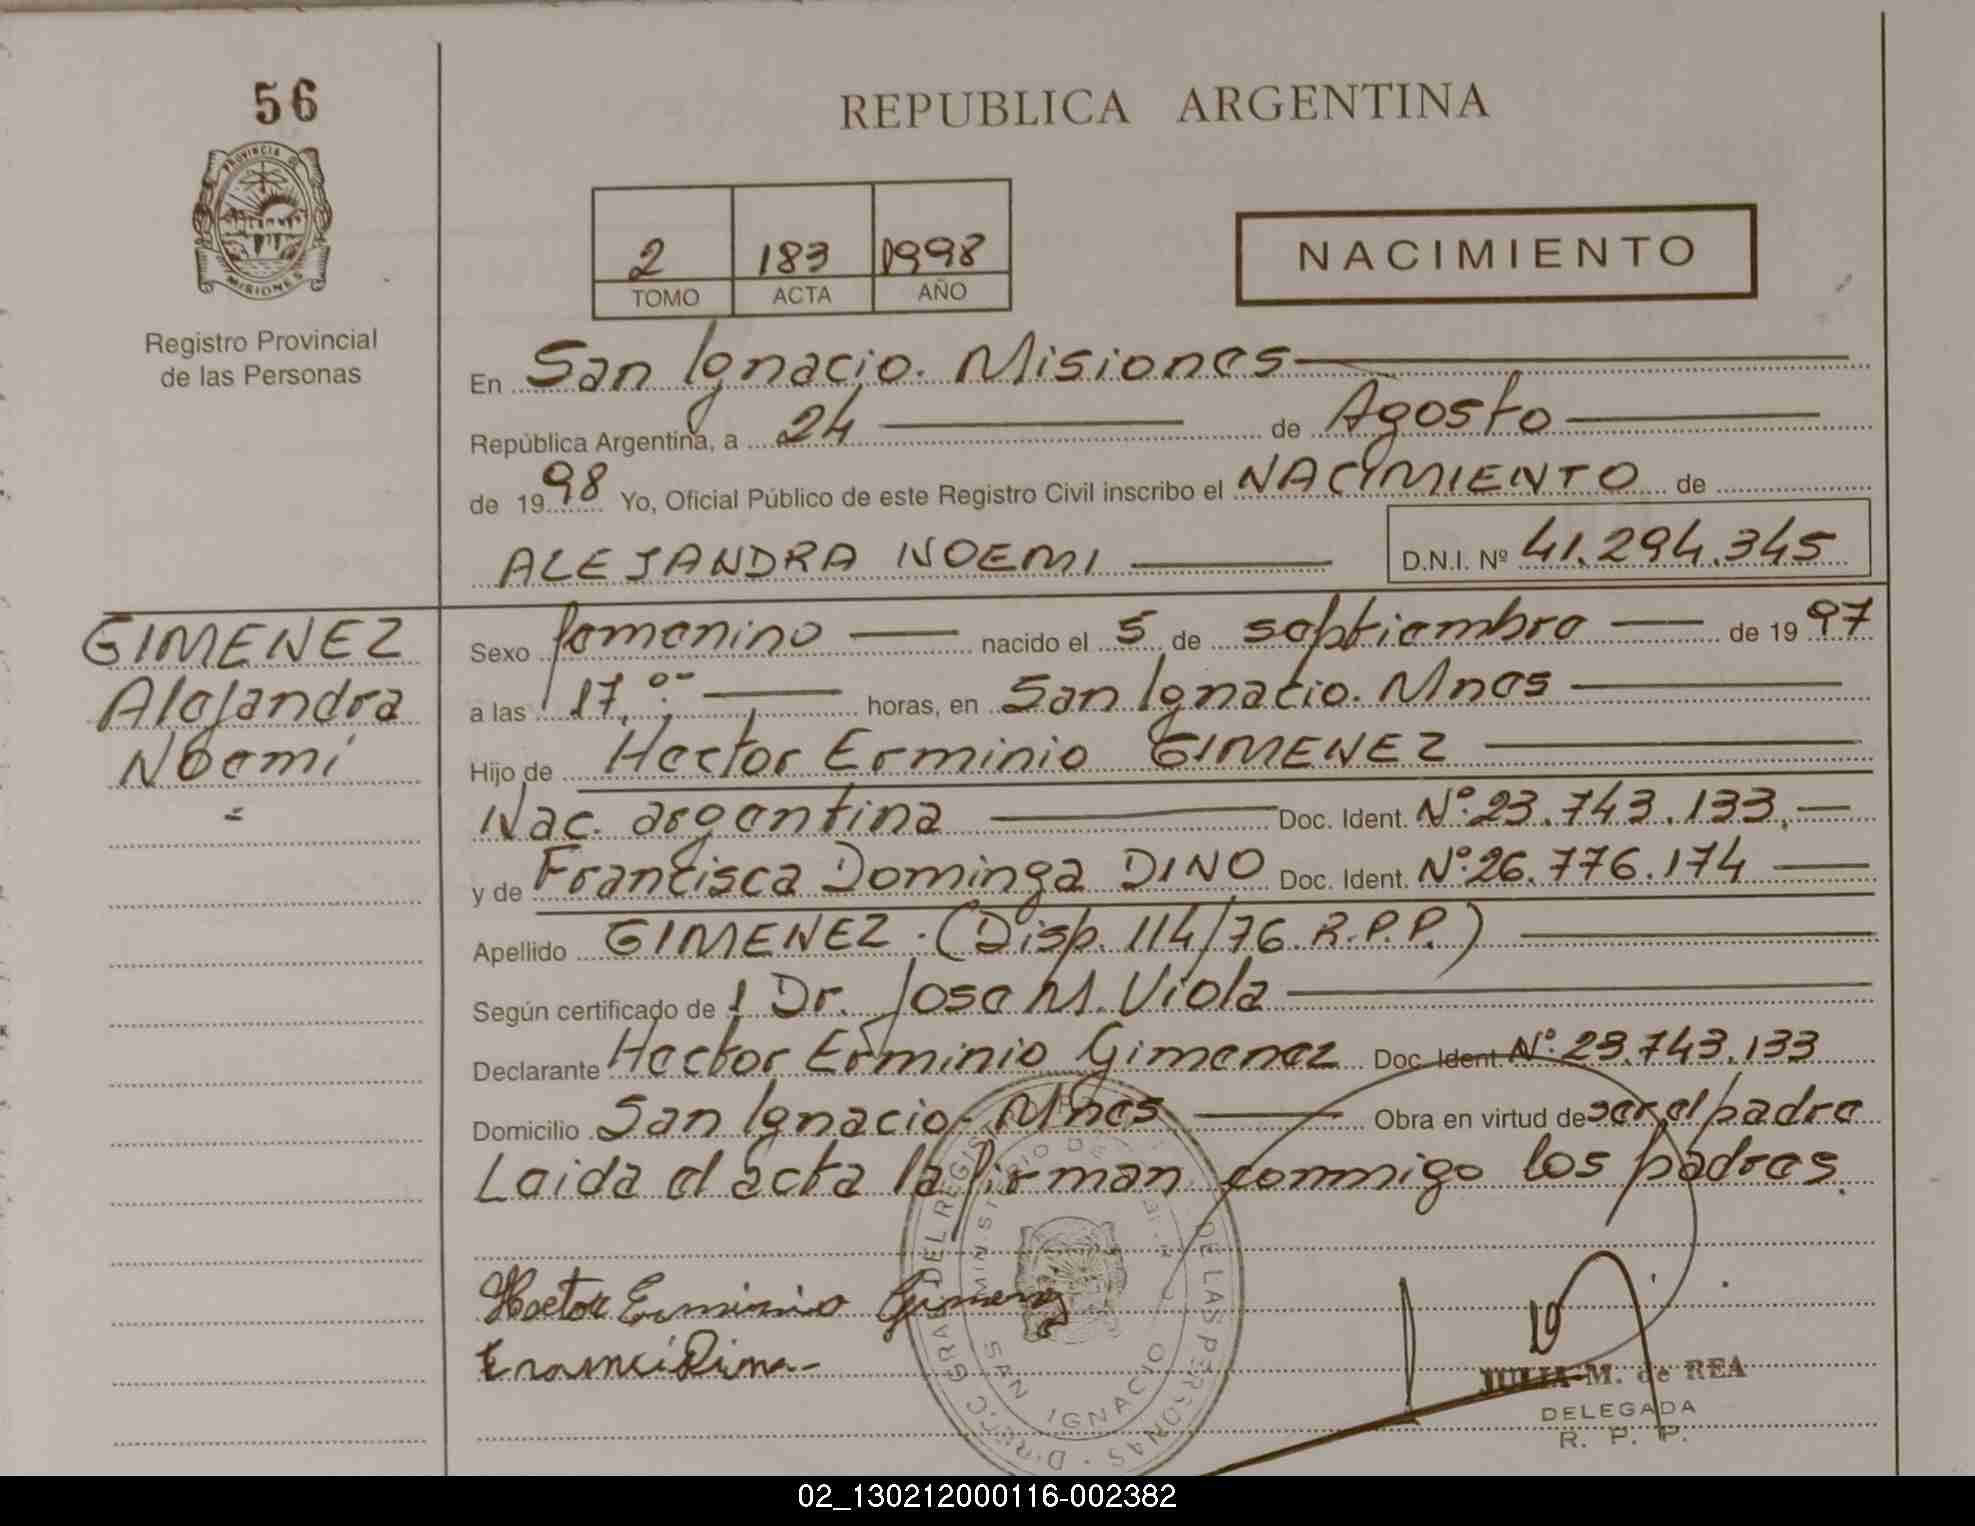 56
PROVINCIA DE
MISIONES
Registro Provincial
de las Personas
REPUBLICA ARGENTINA
2 183 1998
TOMO ACTA AÑO
NACIMIENTO
En San Ignacio. Misiones
República Argentina, a 24 de Agosto
de 1998 Yo, Oficial Público de este Registro Civil inscribo el NACIMIENTO de
ALEJANDRA NOEMI D.N.I. Nº 41.294.345
GIMENEZ
Alejandra
Noemi
Sexo femenino nacido el 5 de septiembre de 1997
a las 17,00 horas, en San Ignacio. Mnes
Hijo de Hector Erminio GIMENEZ
Nac. argentina Doc. Ident. Nº 23.743.133,
y de Francisca Dominga DINO Doc. Ident. Nº 26.776.174
Apellido GIMENEZ. (Disp. 114/76 R.P.P.)
Según certificado de 1 Dr. Jose M. Viola
Declarante Hector Erminio Gimenez Doc. Ident. Nº 23.743.133
Domicilio San Ignacio-Mnes Obra en virtud de ser el padre
Leida el acta la firman conmigo los padres.
Hector Erminio Gimenez
SAN IGNACIO
DE LAS PERSONAS
JULIA M. de REA
DELEGADA
R. P. P.
02_130212000116-002382